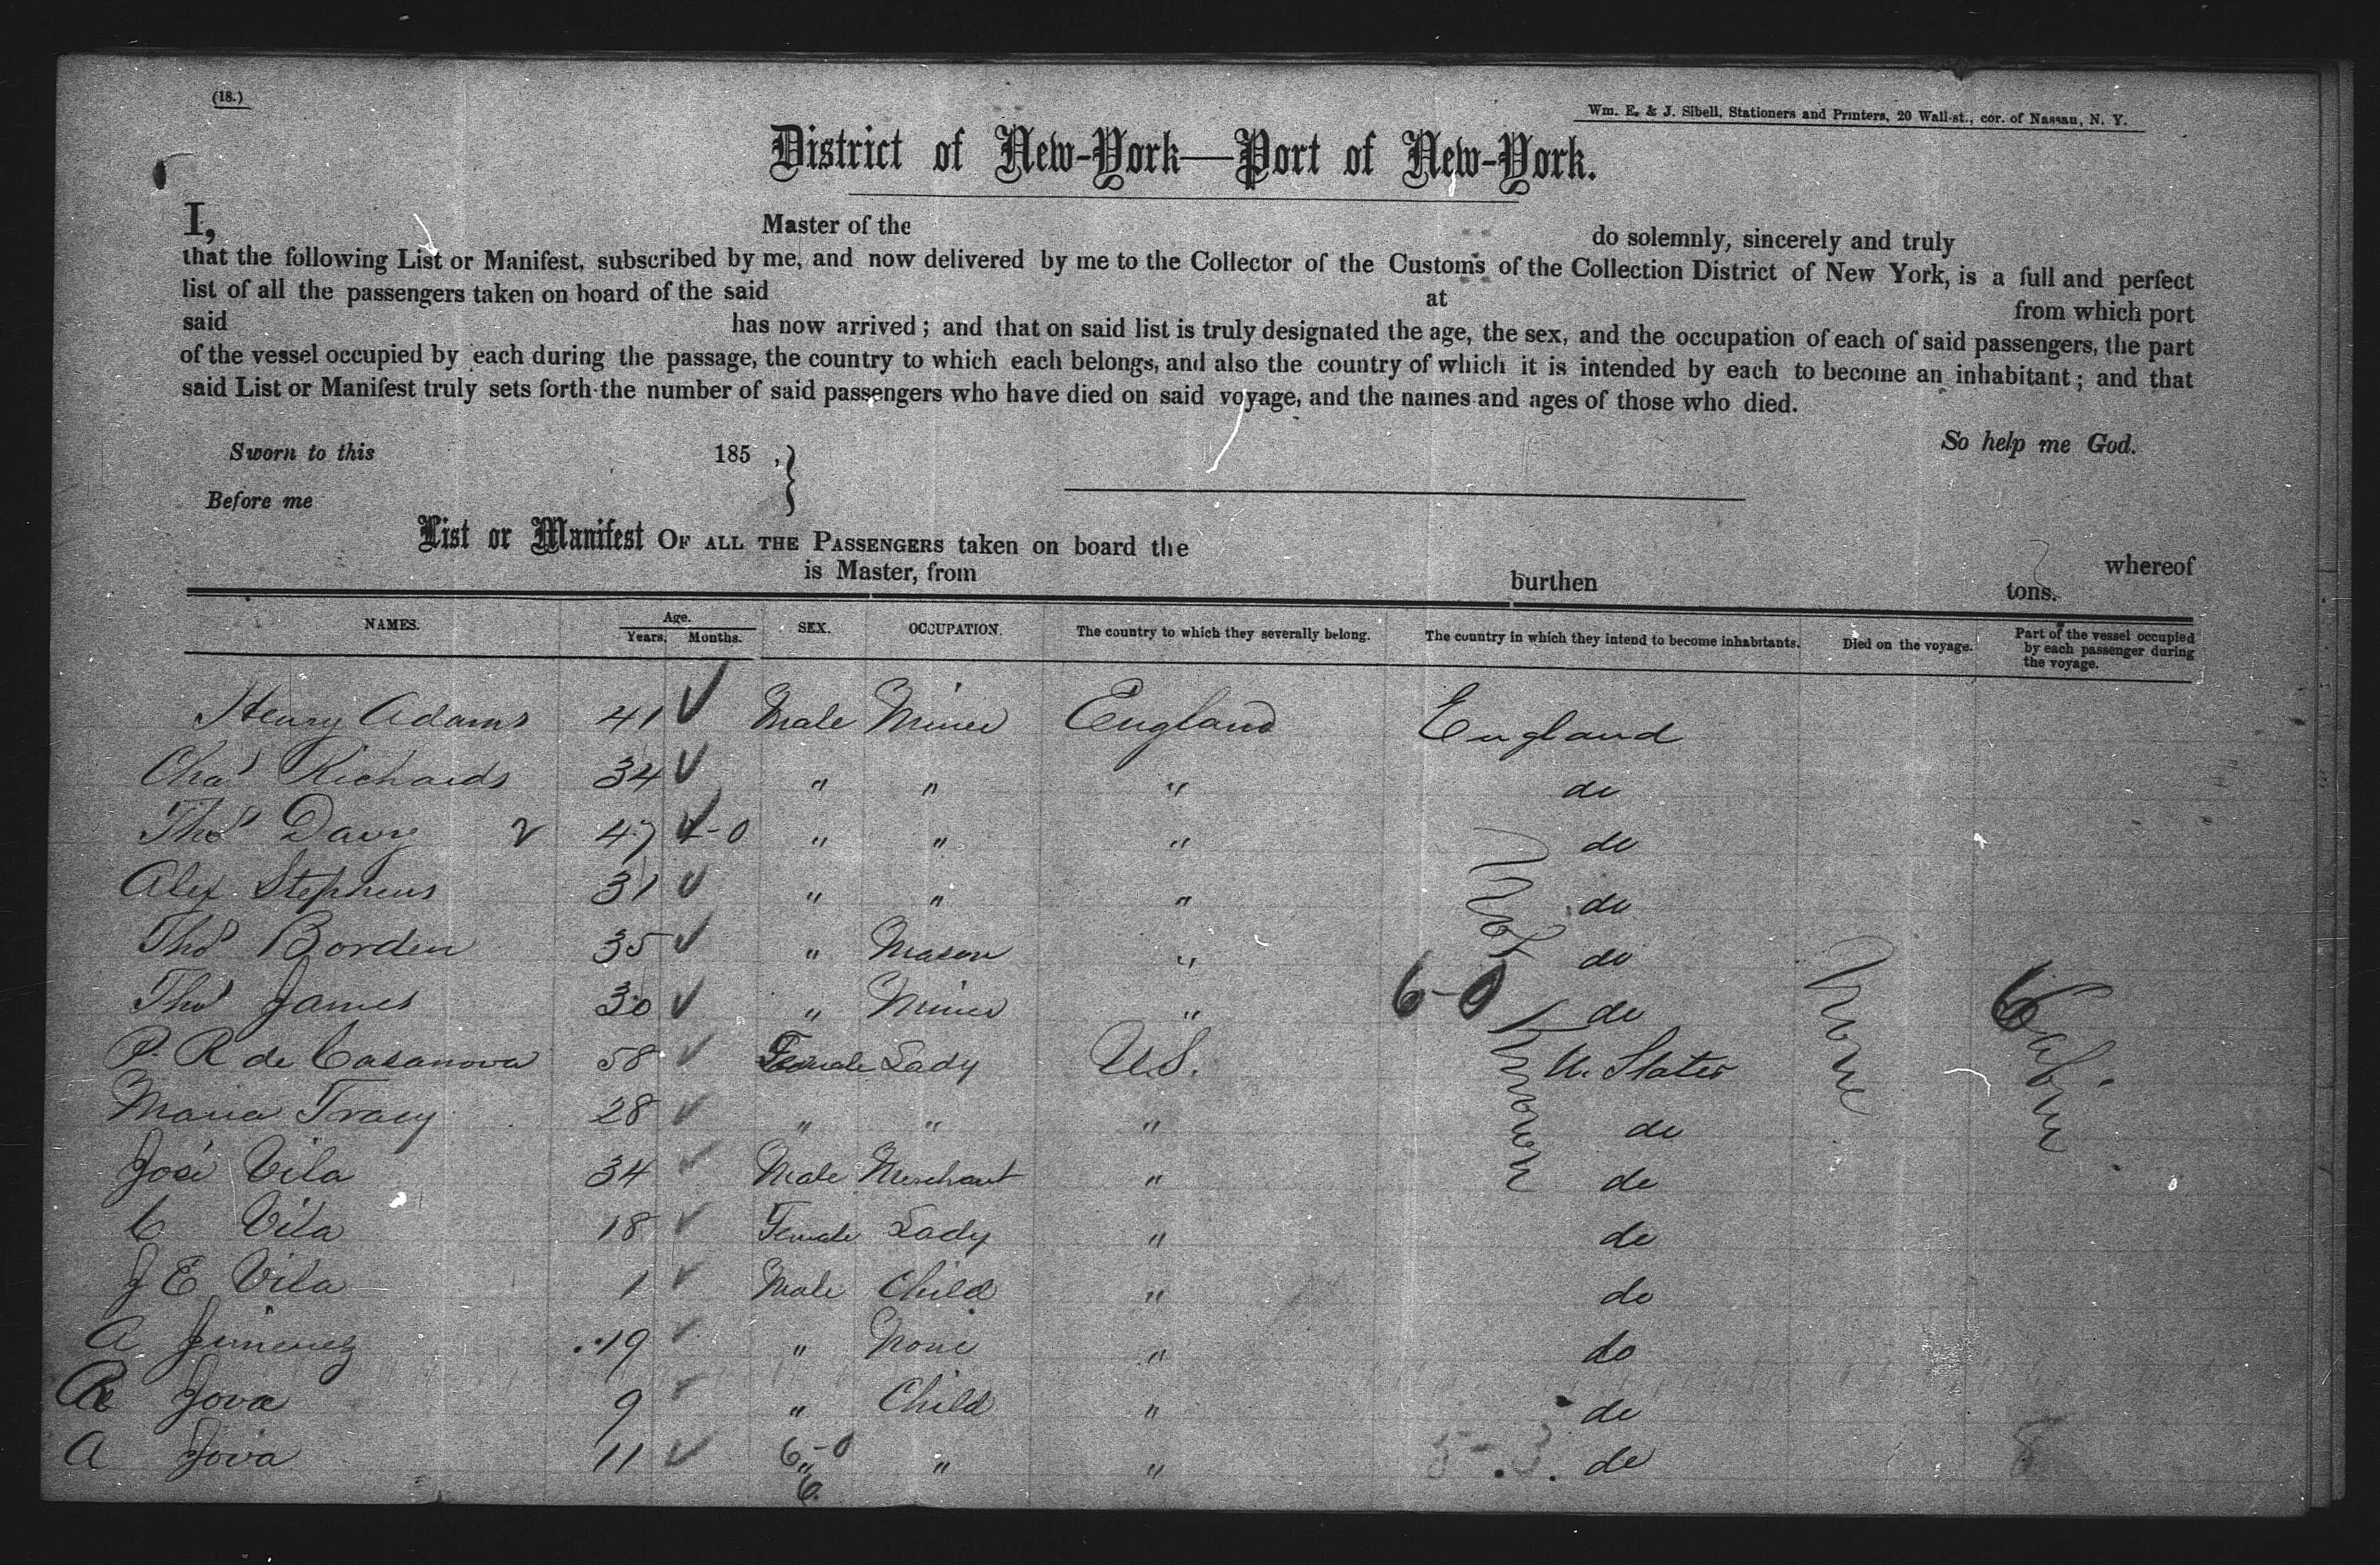 (18.)
Wm. E. & J. Sibell, Stationers and Printers, 20 Wall-st., cor. of Nassau, N. Y.
District of New-York—Port of New-York.
I, Master of the do solemnly, sincerely and truly
that the following List or Manifest, subscribed by me, and now delivered by me to the Collector of the Customs of the Collection District of New York, is a full and perfect
list of all the passengers taken on board of the said at from which port
said has now arrived; and that on said list is truly designated the age, the sex, and the occupation of each of said passengers, the part
of the vessel occupied by each during the passage, the country to which each belongs, and also the country of which it is intended by each to become an inhabitant; and that
said List or Manifest truly sets forth the number of said passengers who have died on said voyage, and the names and ages of those who died.
So help me God.
Sworn to this 185 ,
Before me
List or Manifest OF ALL THE PASSENGERS taken on board the whereof
is Master, from burthen tons.
NAMES. Age. Years. Months. SEX. OCCUPATION. The country to which they severally belong. The country in which they intend to become inhabitants. Died on the voyage. Part of the vessel occupied by each passenger during the voyage.
Henry Adams 41 Male Miner England England
Chas Richards 34 " " " do
Thos Davy 47 " " " do
Alex Stephens 31 " " " do
Thos Borden 35 " Mason " do
Thos James 30 " Miner " 6-0 do
P. R de Casanova 58 Female Lady U.S. U. States
Maria Tracy 28 " " " do
José Vila 34 Male Merchant " do
C Vila 18 Female Lady " do
J E Vila 1 Male Child " do
A Jimenez 19 " None " do
R Jova 9 " Child " do
A Jova 11 6-0 " " " do
6
Not known
None
Cabin